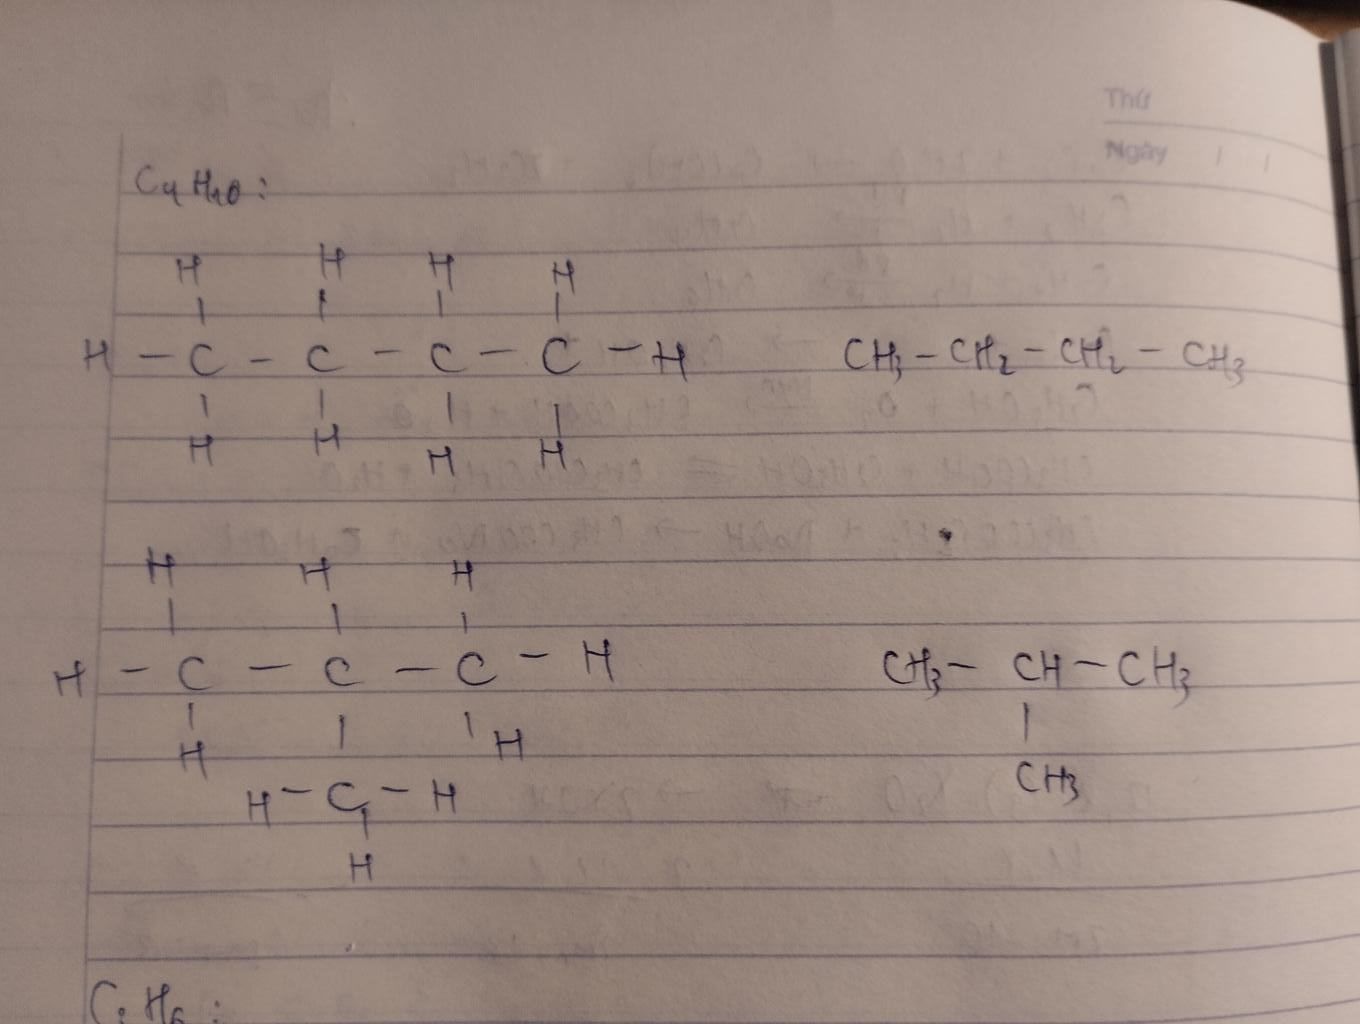 Thứ
Ngày / /
C4H10:
H H H H
| | | |
H – C – C – C – C – H CH3 – CH2 – CH2 – CH3
| | | |
H H H H
H H H
| | |
H – C – C – C – H CH3 – CH – CH3
| | | |
H H CH3
H – C – H
|
H